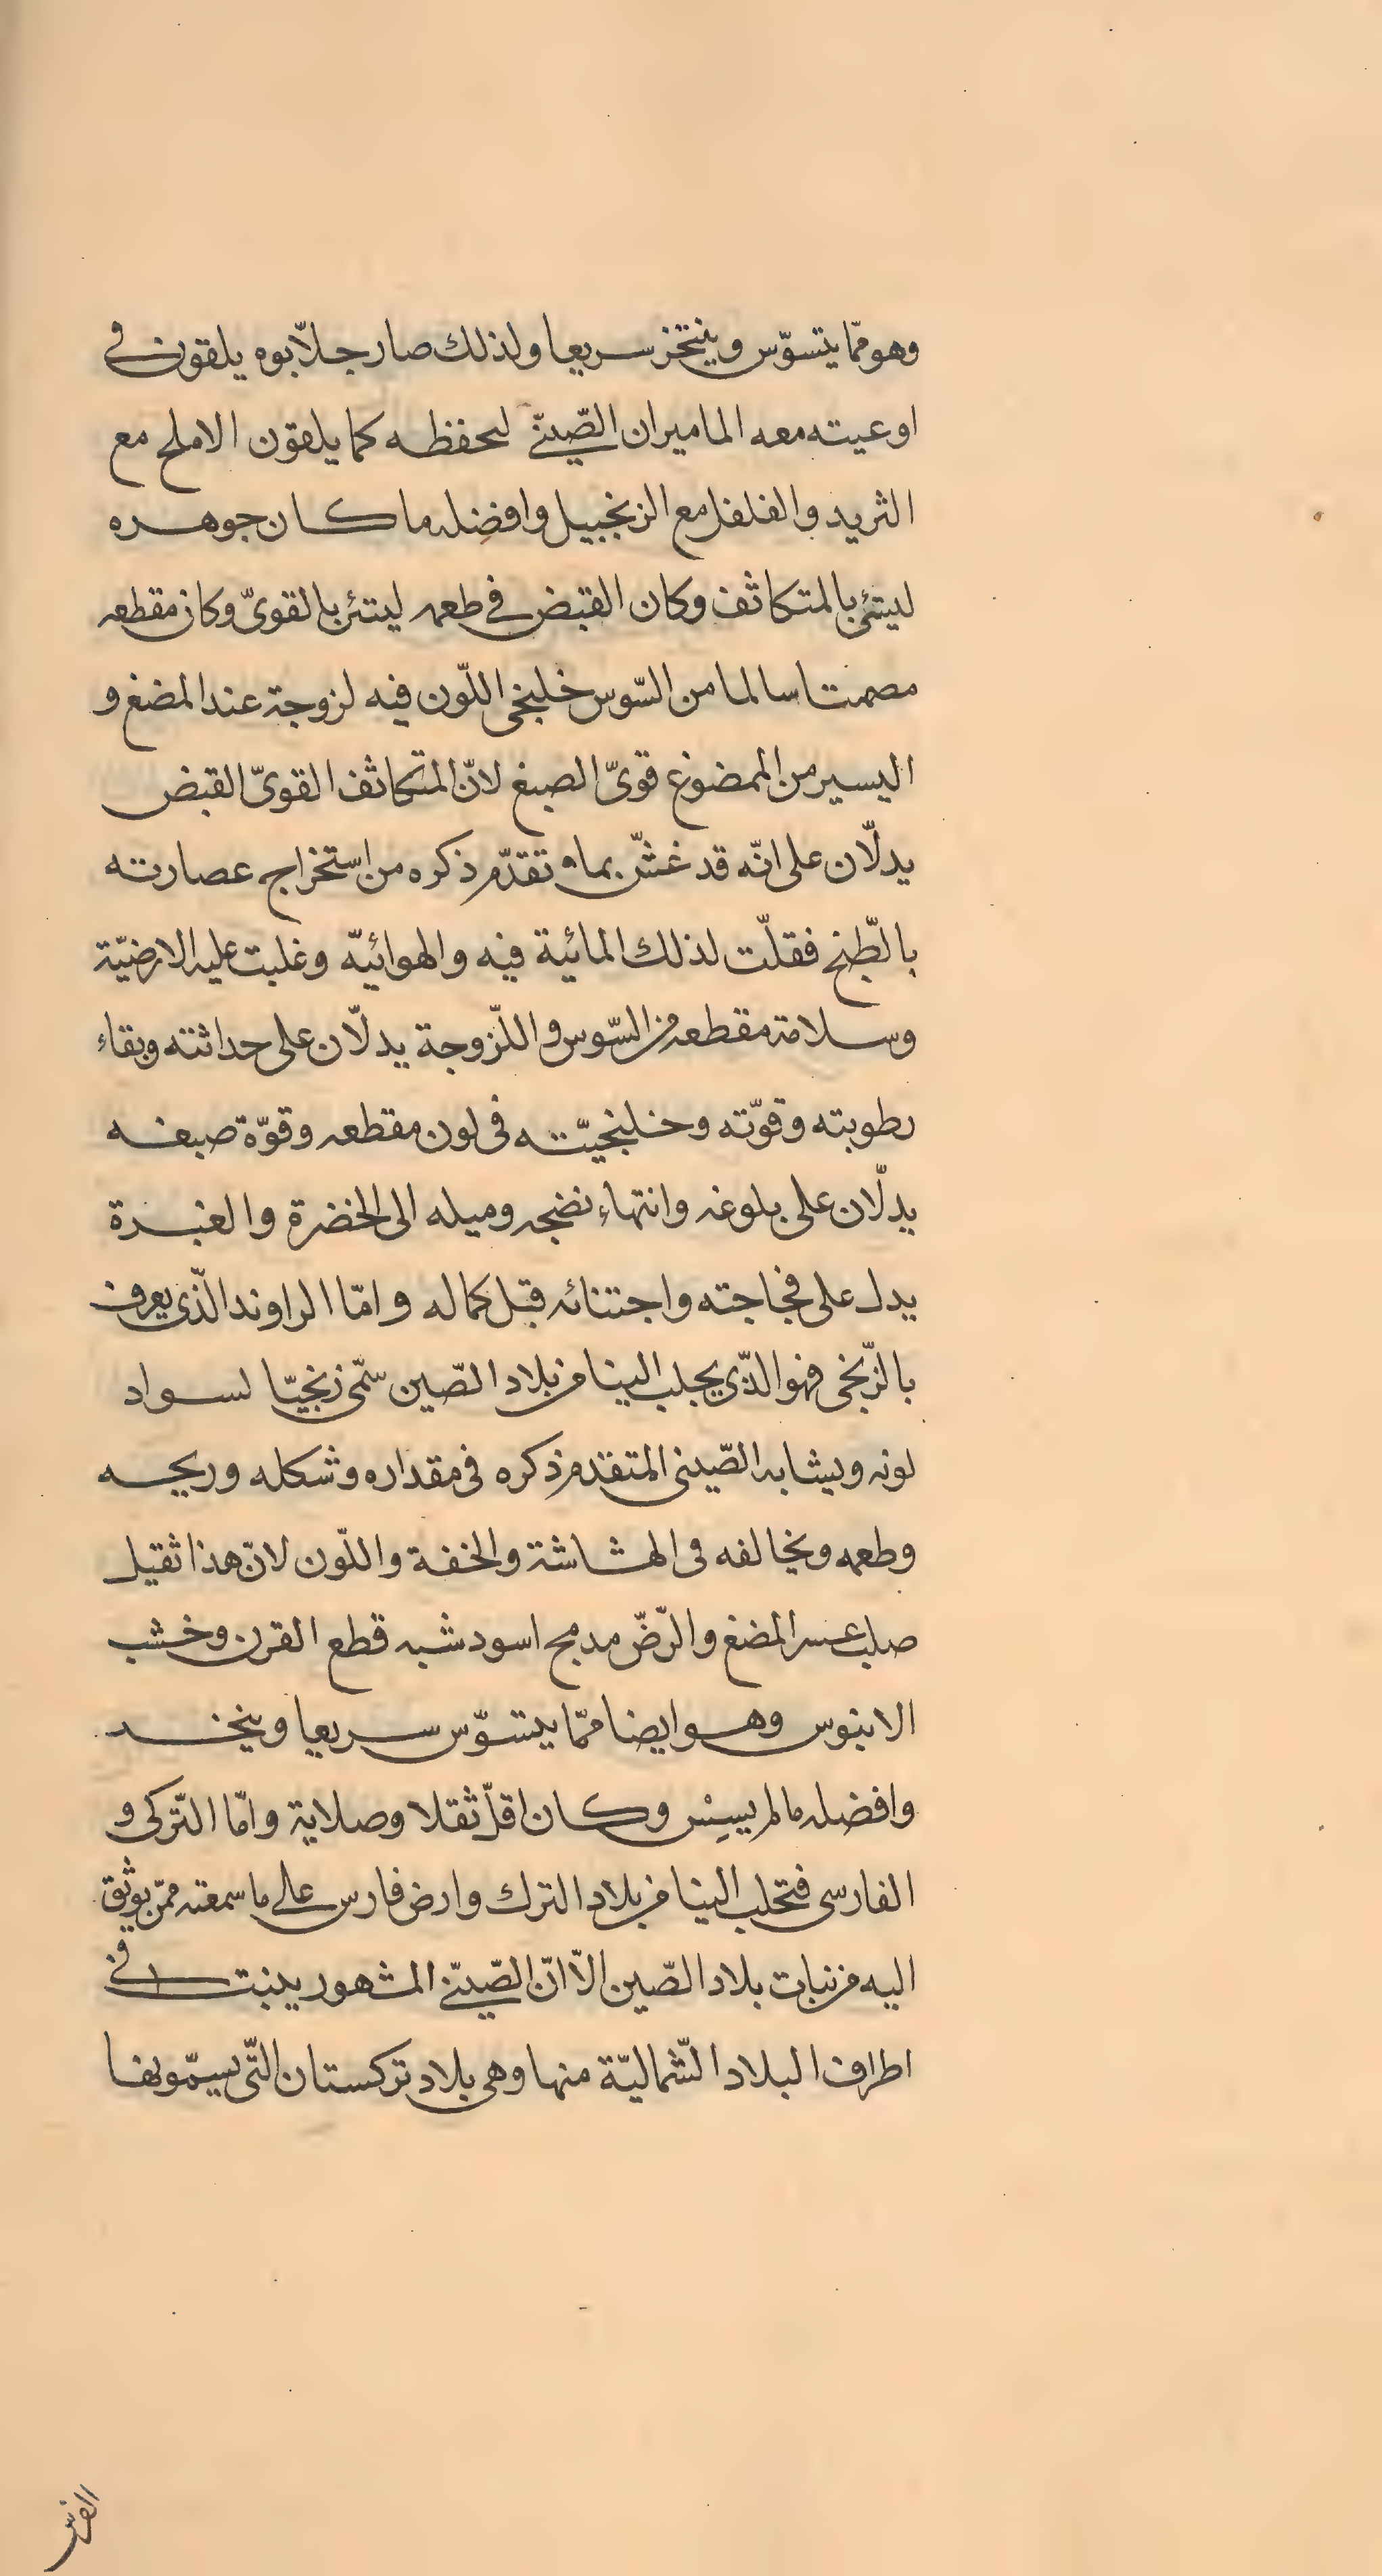 وهو ممّا يتسوّس وينتخز سريعا ولذلك صار جلاّبوه يلقون في
اوعيته معه الماميران الصّينيّ لحفظه كما يلقون الاملح مع
التريد والفلفل مع الزنجبيل وافضله ما كان جوهره
ليتئ بالمتكاثف وكان القبض في طعمه ليتئ بالقويّ وكان مقطعه
مصمتا سالما من السّوس خلنجى اللّون فيه لزوجة عند المضغ و
اليسير من الممضوغ قويّ الصبغ لانّ المتكاثف القويّ القبض
يدلّان على انّه قد غشّ بما تقدّم ذكره من استخراج عصارته
بالطّبخ فقلّت لذلك المائية فيه والهوائيّة وغلبت عليه الارضيّة
وسلامة مقطعه من السّوس واللّزوجة يدلّان على حداثته وبقاء
رطوبته وقوّته وخلنجيّته فى لون مقطعه وقوّة صبغه
يدلّان على بلوغه وانتهاء نضجه وميله الى الخضرة والغبرة
يدل على فجاجته واجتنائه قبل كماله وامّا الراوند الّذى يعرف
بالزّنجى فهو الّذى يجلب الينا من بلاد الصّين سمّى زنجيّا لسواد
لونه ويشابه الصّينى المتقدم ذكره فى مقداره وشكله وريحه
وطعمه ويخالفه فى الهشاشة والخفة واللّون لانّ هذا ثقيل
صلب عسر المضغ والرّضّ مدمج اسود شبه قطع القرن وخشب
الابنوس وهو ايضا ممّا يتسوّس سريعا وينخـد
وافضله ما لم يسِسْ وكان اقلّ ثقلا وصلابة وامّا التّركى و
الفارسى فتجلب الينا من بلاد الترك وارض فارس على ما سمعته ممّن يوثق
اليه من نبات بلاد الصّين الاّ انّ الصّينيّ المشهور ينبت في
اطراف البلاد الشّماليّة منها وهى بلاد تركستان الّتى يسمّونها
الفرس